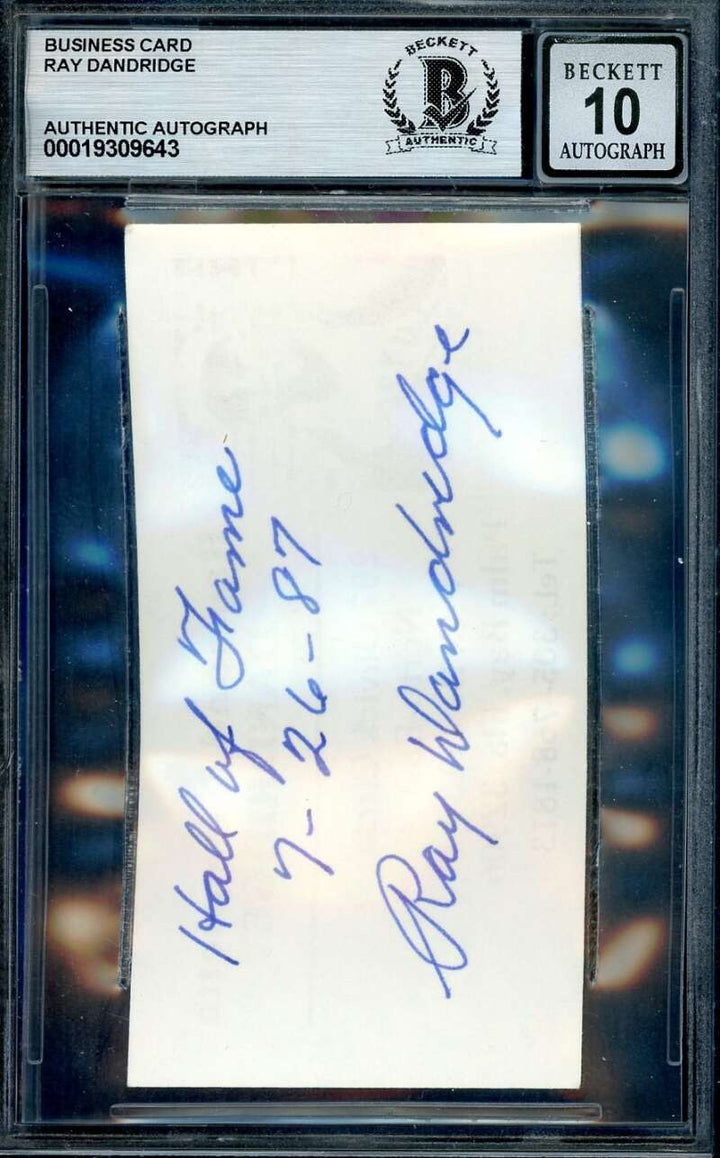 BUSINESS CARD
RAY DANDRIDGE
AUTHENTIC AUTOGRAPH
00019309643
BECKETT
B
AUTHENTIC
BECKETT
10
AUTOGRAPH
Hall of Fame
7-26-87
Ray Dandridge